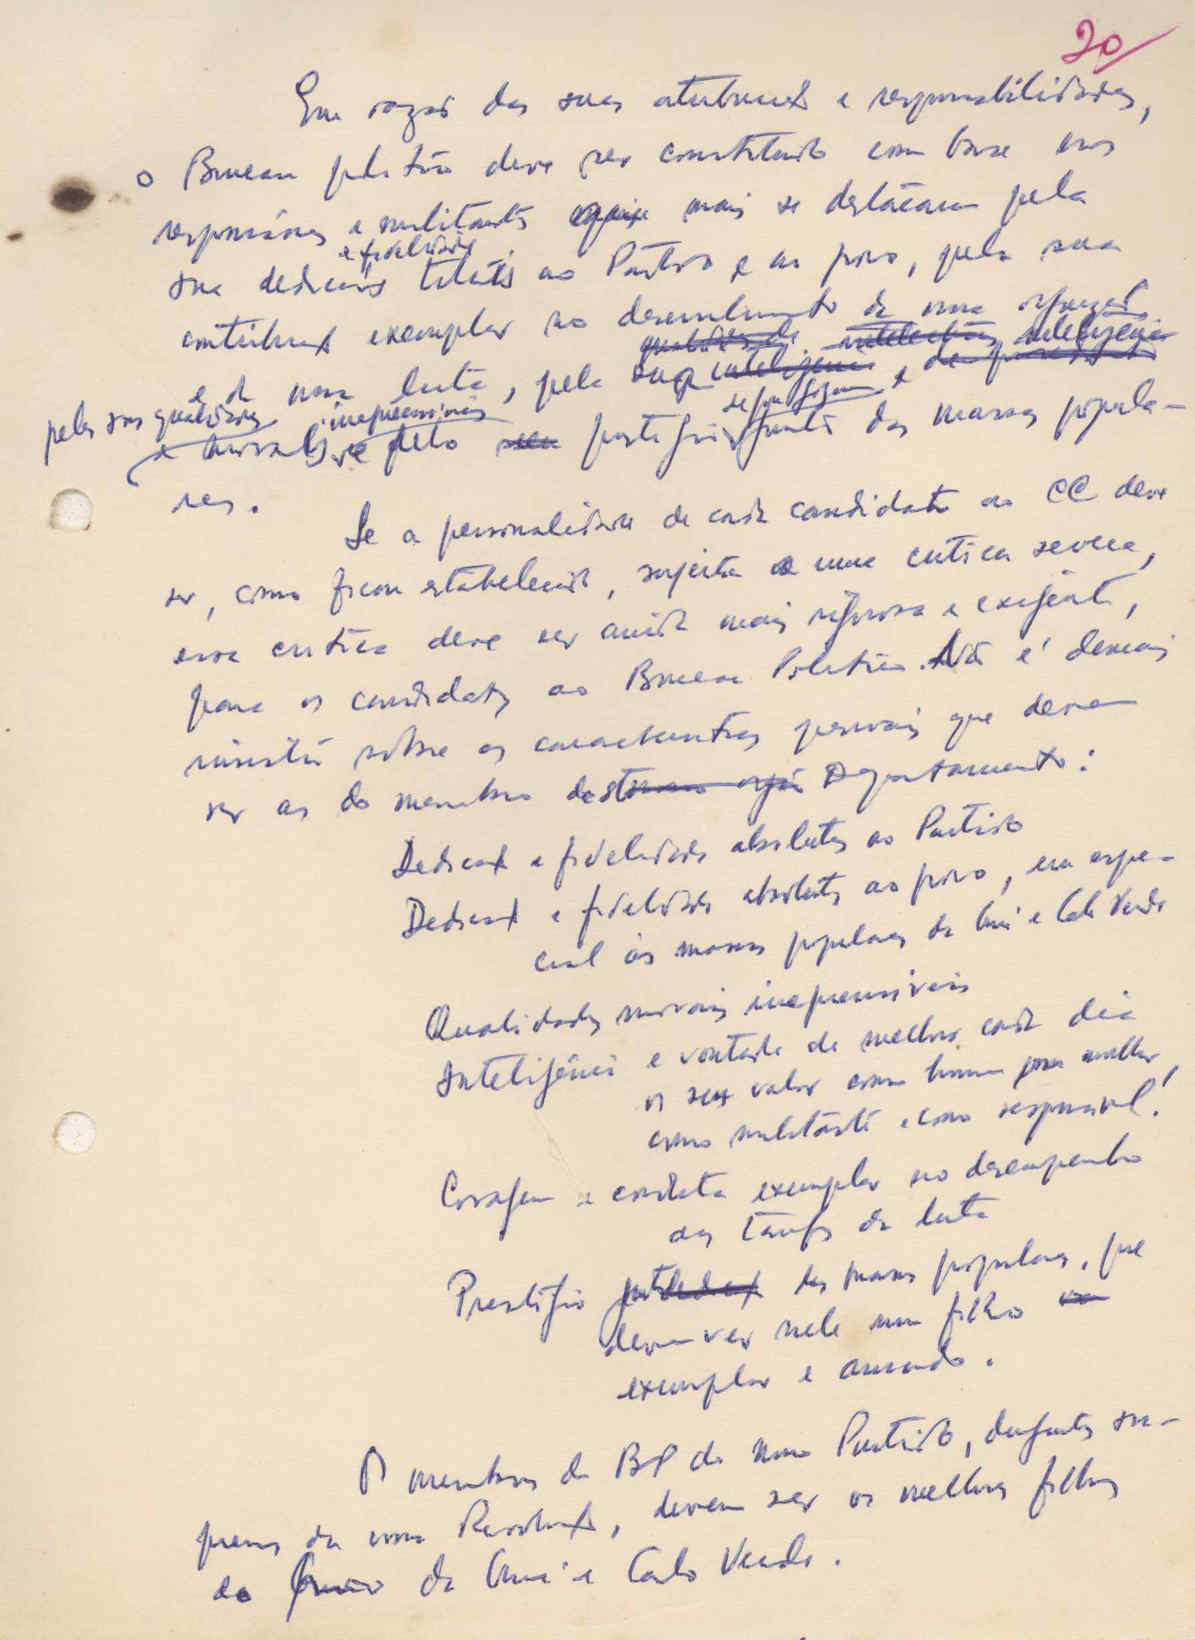 20
Em razão das suas atribuições e responsabilidades,
o Bureau político deve ser constituído com base nos
responsáveis e militantes que mais se destacam pela
e fidelidade
sua dedicação totais ao Partido e ao povo, pela sua
contribuição exemplar no desenvolvimento da nossa organização
qualidades de intelectuais inteligência
e da nossa luta, pela sua inteligência e
pelas suas qualidades irrepreensíveis de que gozam
e morais e pelo seu prestígio junto das massas popula-
res.
Se a personalidade de cada candidato ao CC deve
ser, como ficou estabelecido, sujeita a uma crítica severa,
essa crítica deve ser ainda mais rigorosa e exigente,
para os candidatos ao Bureau Político. Não é demais
insistir sobre as características pessoais que devem
ser as do membro deste órgão Departamento:
Dedicação e fidelidade absolutas ao Partido
Dedicação e fidelidade absolutas ao povo, em espe-
cial às massas populares da Guiné e Cabo Verde
Qualidades morais irrepreensíveis
Inteligência e vontade de melhorar cada dia
o seu valor como homem ou mulher,
como militante e como responsável!
Coragem e conduta exemplar no desempenho
das tarefas da luta
Prestígio das massas populares, que
devem ver nele um filho
exemplar e amado.
Os membros do BP do nosso Partido, dirigentes su-
premos da nossa Revolução, devem ser os melhores filhos
do povo da Guiné e Cabo Verde.